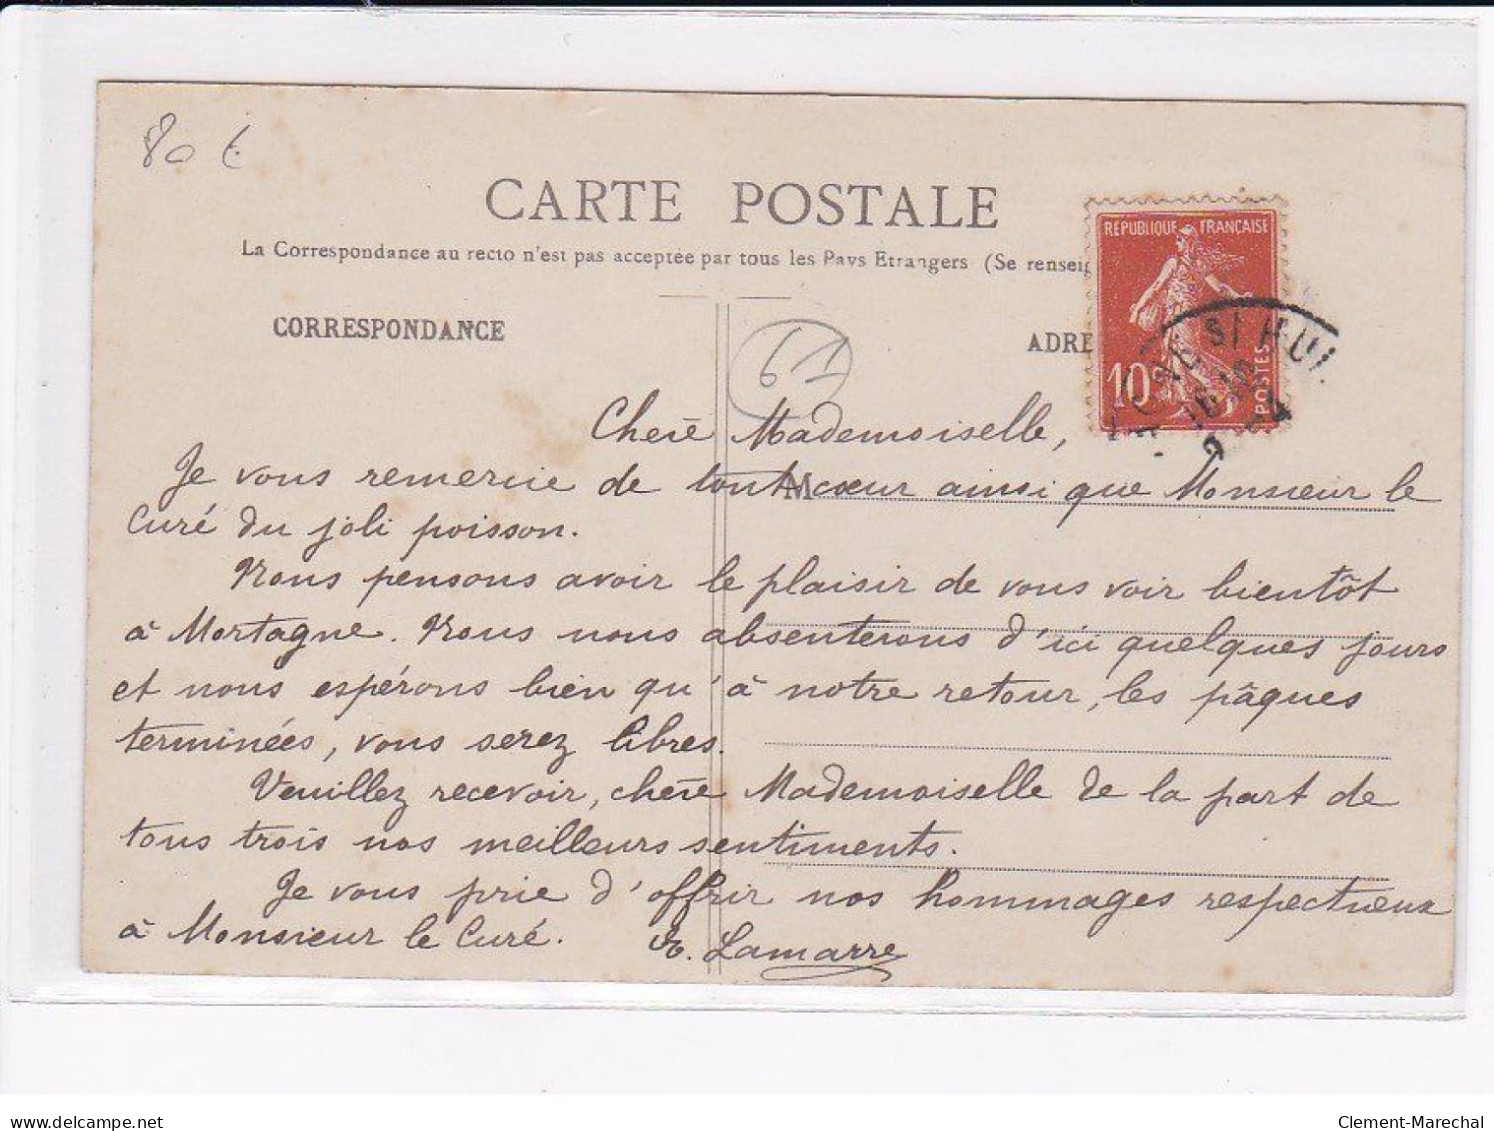 80 €
CARTE POSTALE
La Correspondance au recto n'est pas acceptée par tous les Pays Etrangers (Se renseig
CORRESPONDANCE
ADRE
REPUBLIQUE FRANÇAISE
10c
POSTES
61
M
Chère Mademoiselle,
Je vous remercie de tout cœur ainsi que Monsieur le
Curé du joli poisson.
Nous pensons avoir le plaisir de vous voir bientôt
à Mortagne. Nous nous absenterons d'ici quelques jours
et nous espérons bien qu'à notre retour, les pâques
terminées, vous serez libres.
Veuillez recevoir, chère Mademoiselle de la part de
tous trois nos meilleurs sentiments.
Je vous prie d'offrir nos hommages respectueux
à Monsieur le Curé. Lamarre
delcampe.net
Clement-Marechal